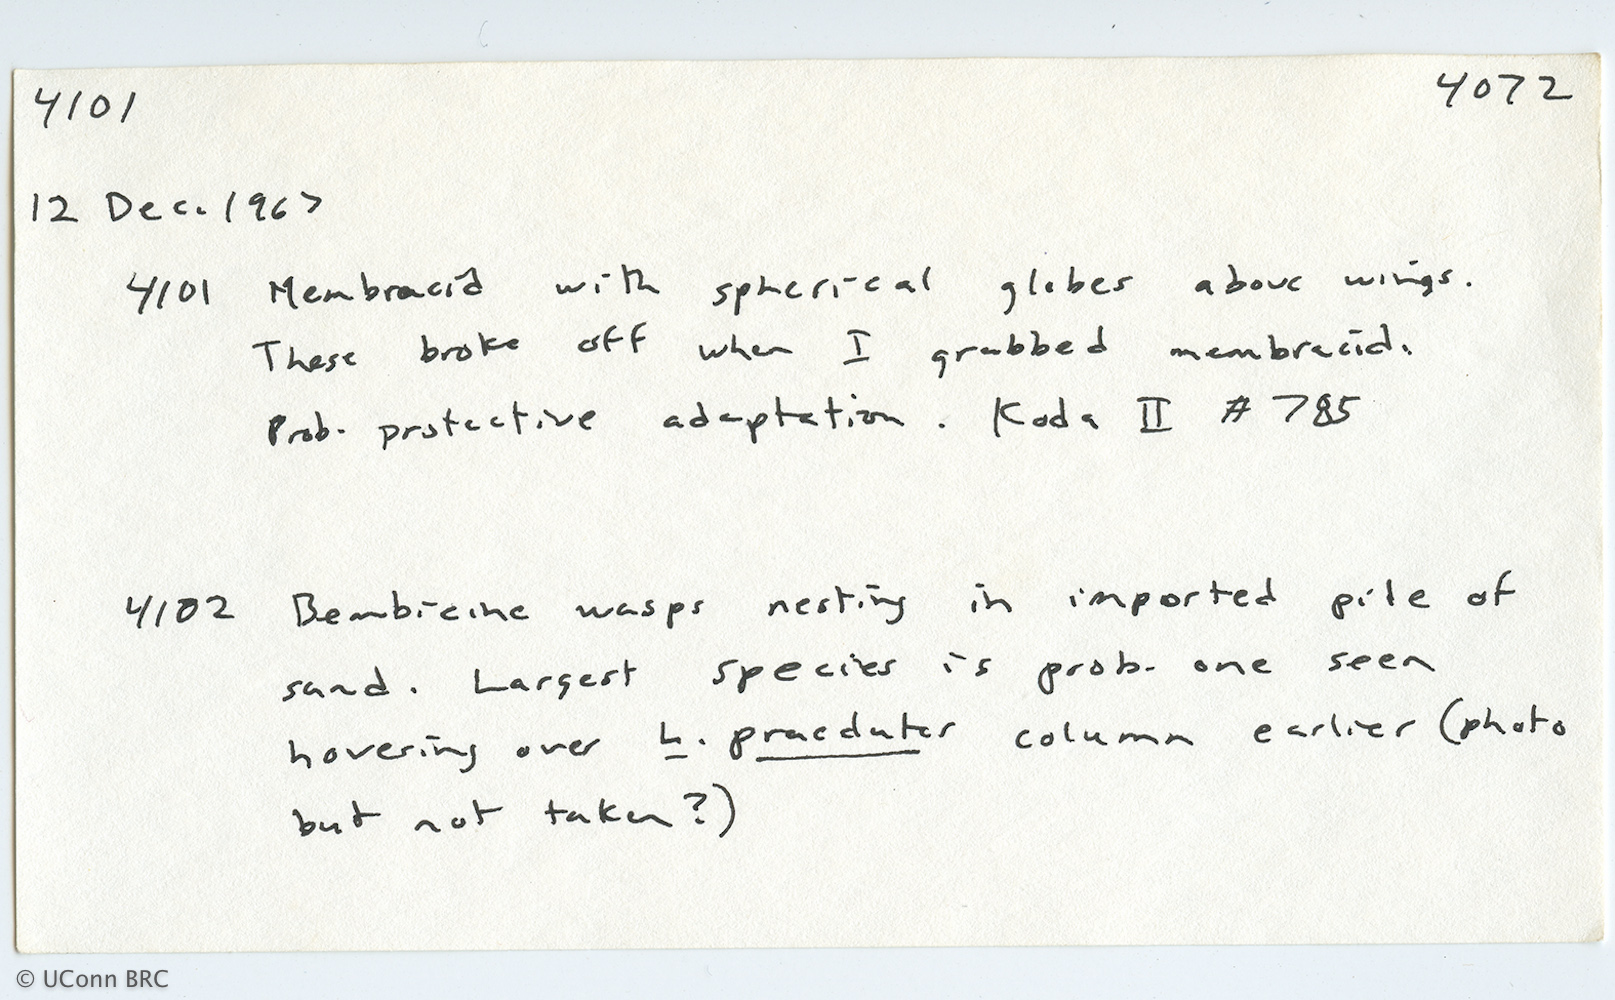 4101 4072
12 Dec. 1967
4101 Membracid with spherical globes above wings.
These broke off when I grabbed membracid.
Prob. protective adaptation. Koda II # 785
4102 Bembicine wasps nesting in imported pile of
sand. Largest species is prob. one seen
hovering over L. praedator column earlier (photo
but not taken?)
© UConn BRC